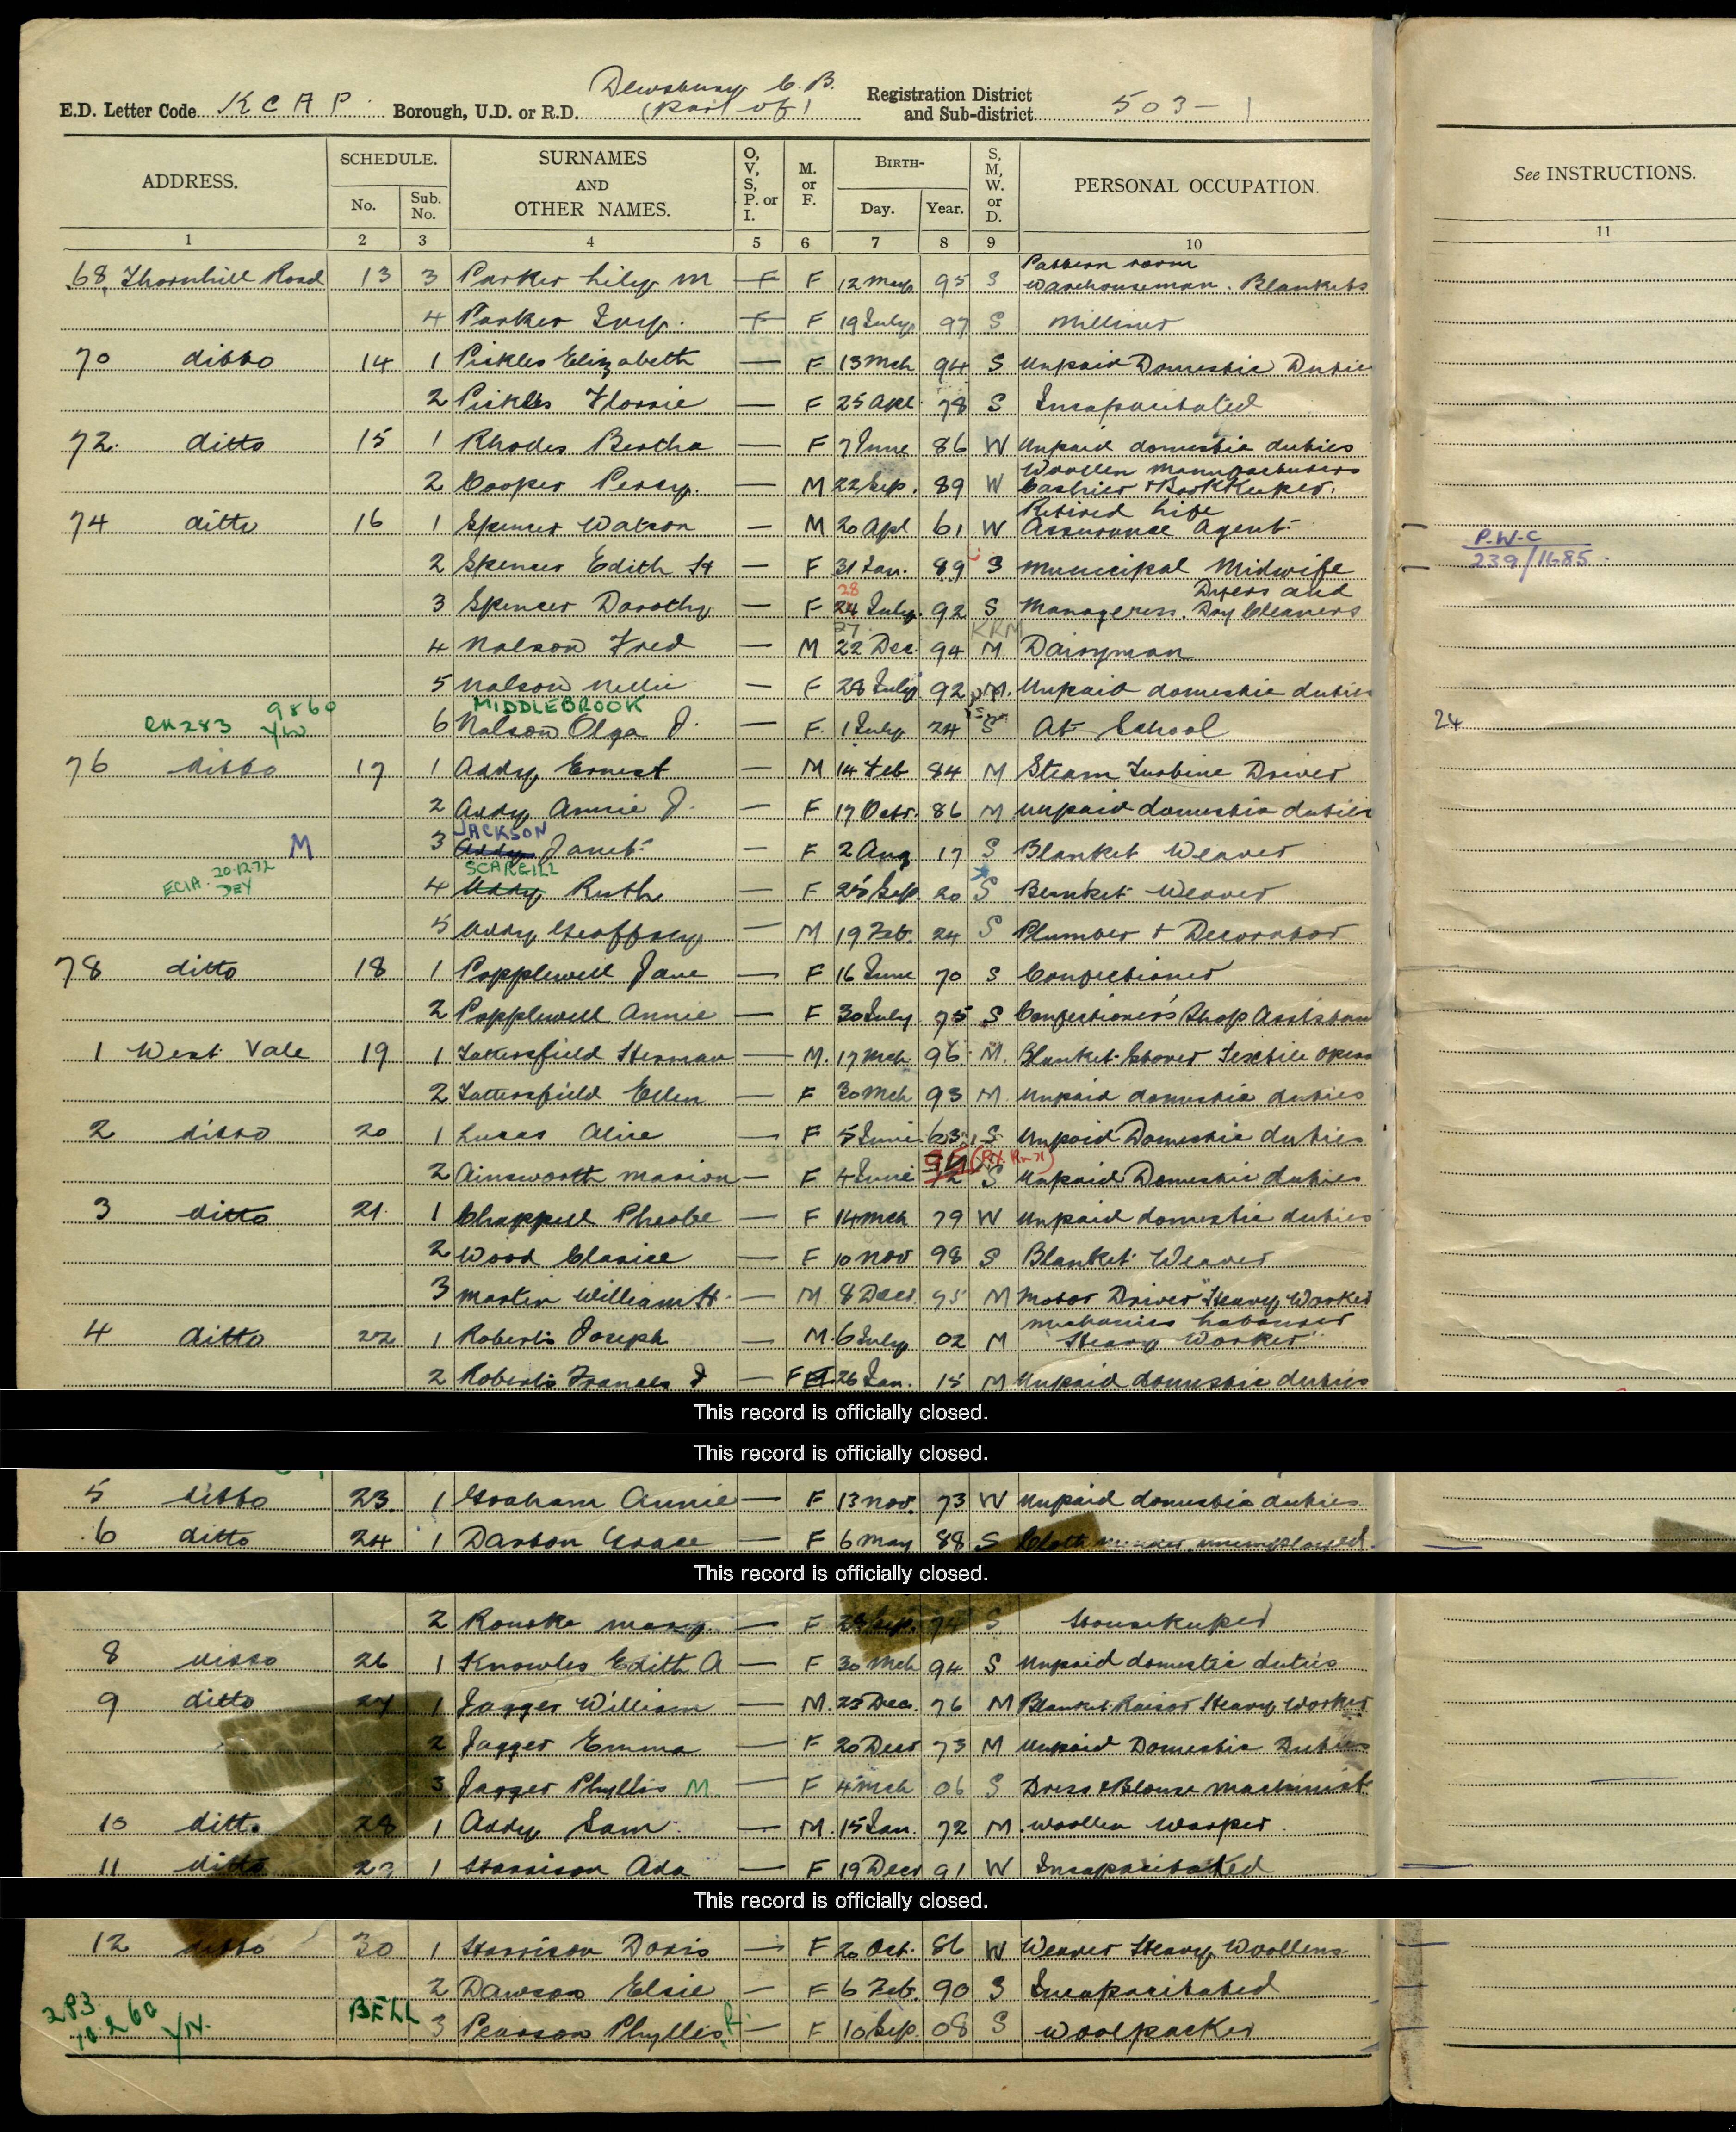 Dewsbury C. B.
E.D. Letter Code K C A P. Borough, U.D. or R.D. (Part of) Registration District and Sub-district 503-1
ADDRESS. SCHEDULE. No. Sub. No. SURNAMES AND OTHER NAMES. O, V, S, P. or I. M. or F. BIRTH- Day. Year. S, M, W. or D. PERSONAL OCCUPATION. See INSTRUCTIONS.
1 2 3 4 5 6 7 8 9 10 11
Pattern room
68, Thornhill Road 13 3 Parker Lily M F 12 May 95 S Warehouseman. Blankets
4 Parker Ivy. F 19 July 97 S Milliner
70 ditto 14 1 Pickles Elizabeth — F 13 Mch 94 S Unpaid Domestic Dutie
2 Pickles Florrie — F 25 Apl 78 S Incapacitated
72. ditto 15 1 Rhodes Bertha — F 7 June 86 W Unpaid domestic duties
Woollen Manufacturers
2 Cooper Percy. — M 22 Sep. 89 W Cashier & Bookkeeper.
Retired Life
74 ditto 16 1 Spencer Watson — M 20 Apl 61 W Assurance Agent
P.W.C
2 Spencer Edith H — F 31 Jan. 89 S Municipal Midwife 239/1685.
28 Dyers and
3 Spencer Dorothy — F 24 July 92 S Manageress. Dry Cleaners
27. KRM
4 Nalson Fred — M 22 Dec. 94 M Dairyman
5 Nalson Nellie — F 28 July 92 M. Unpaid domestic duties
9860 MIDDLEBROOK
283 6 Nalson Olga J. — F. 1 July 24 S At School 24
76 ditto 17 1 Addy Ernest — M 14 Feb 84 M Steam Turbine Driver
2 Addy Annie J. — F 17 Octr. 86 M Unpaid domestic duties
JACKSON
M 3 Addy Janet — F 2 Aug 17 S Blanket Weaver
20.12.72 SCARGILL
4 Addy Ruth — F 25 Sep. 20 S Blanket Weaver
5 Addy Geoffrey — M 19 Feb. 24 S Plumber & Decorator
78 ditto 18 1 Popplewell Jane — F 16 June 70 S Confectioner
2 Popplewell Annie — F 30 July 75 S Confectioner's Shop Assistan
1 West Vale 19 1 Tattersfield Herman — M. 17 Mch. 96. M. Blanket Textile Opera
2 Tattersfield Ellen — F 30 Mch 93 M Unpaid domestic duties
2 ditto 20 1 Lucas Alice — F 5 June 63 S Unpaid Domestic duties
2 Ainsworth Marion — F 4 June S Unpaid Domestic duties
3 ditto 21 1 Chappell Pheobe — F 14 Mch 79 W Unpaid domestic duties
2 Wood Clarice — F 10 Nov 98 S Blanket Weaver
3 Martin William H. — M. 8 Decr 95 M Motor Driver "Heavy Worker
Mechanics Labourer
4 ditto 22 1 Roberts Joseph — M. 6 July 02 M "Heavy Worker"
2 Roberts Frances J — F 26 Jan. 15 M Unpaid domestic duties
This record is officially closed.
This record is officially closed.
5 ditto 23. 1 Graham Annie — F 13 Nov. 73 W Unpaid domestic duties
6 ditto 24 1 Darton Grace — F 6 May 88 S Cloth mender unemployed.
This record is officially closed.
2 Rourke Mary. — F Sep. 74 S Housekeeper
8 ditto 26 1 Knowles Edith A — F 30 Mch 94 S Unpaid domestic duties
9 ditto 27 1 Jagger William — M. 23 Dec. 76 M Blanket Raiser Heavy Worker
2 Jagger Emma — F 20 Decr 73 M Unpaid Domestic Duties
3 Jagger Phyllis M. — F 4 Mch 06 S Dress & Blouse Machinist
10 ditto 28 1 Addy Sam. — M. 15 Jan. 72 M. Woollen Warper.
11 ditto 29 1 Harrison Ada — F 19 Decr 91 W Incapacitated
This record is officially closed.
12 ditto 30 1 Harrison Doris — F 20 Oct. 86 W Weaver Heavy Woollens
2 Dawson Elsie — F 6 Feb. 90 S Incapacitated
283 BELL
3 Pearson Phyllis — F 10 Sep. 08 S Woolpacker